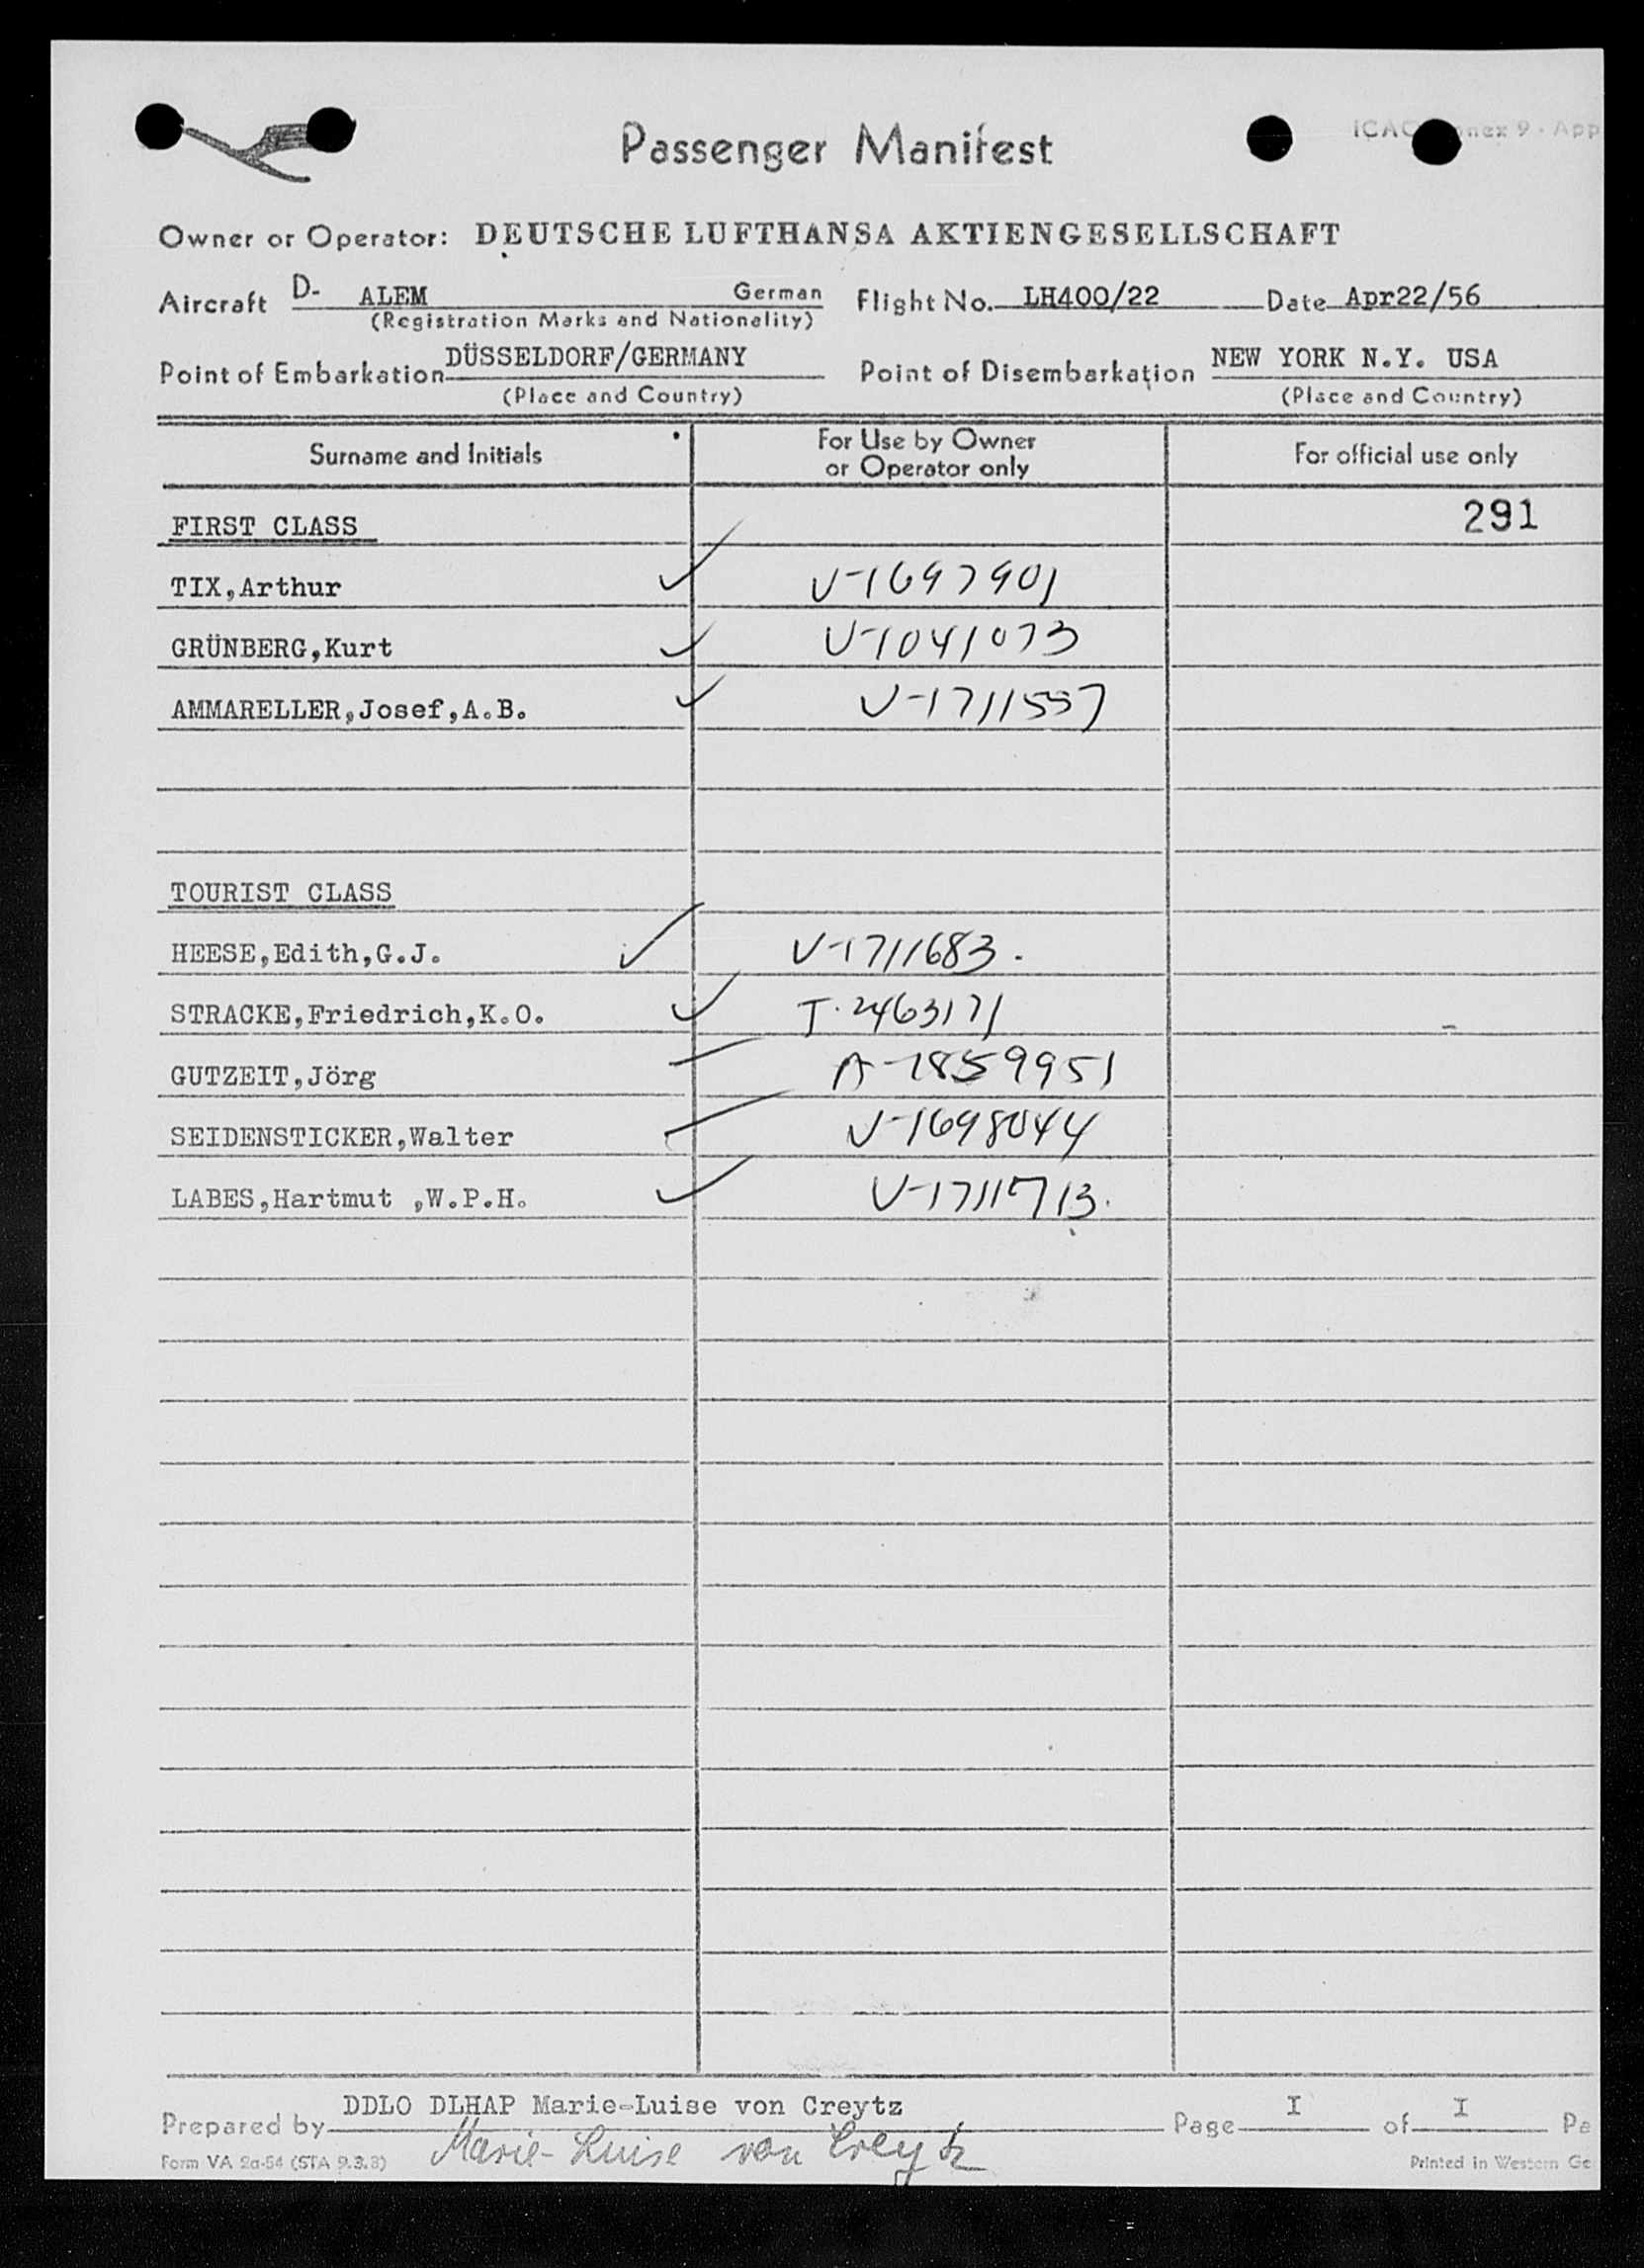 Passenger Manifest
ICAO Annex 9 - App
Owner or Operator: DEUTSCHE LUFTHANSA AKTIENGESELLSCHAFT
Aircraft D- ALEM German Flight No. LH400/22 Date Apr22/56
(Registration Marks and Nationality)
Point of Embarkation DÜSSELDORF/GERMANY Point of Disembarkation NEW YORK N.Y. USA
(Place and Country) (Place and Country)
Surname and Initials For Use by Owner or Operator only For official use only
FIRST CLASS 291
TIX,Arthur V-1697901
GRÜNBERG,Kurt V-1041073
AMMARELLER,Josef,A.B. V-1711557
TOURIST CLASS
HEESE,Edith,G.J. V-1711683.
STRACKE,Friedrich,K.O. T-2463171
GUTZEIT,Jörg A-7859951
SEIDENSTICKER,Walter V-1698044
LABES,Hartmut ,W.P.H. V-1711713.
DDLO DLHAP Marie-Luise von Creytz
Prepared by Page I of I Pa
Marie-Luise von Creytz
Form VA 2a-54 (STA 9.3.8) Printed in Western Ge